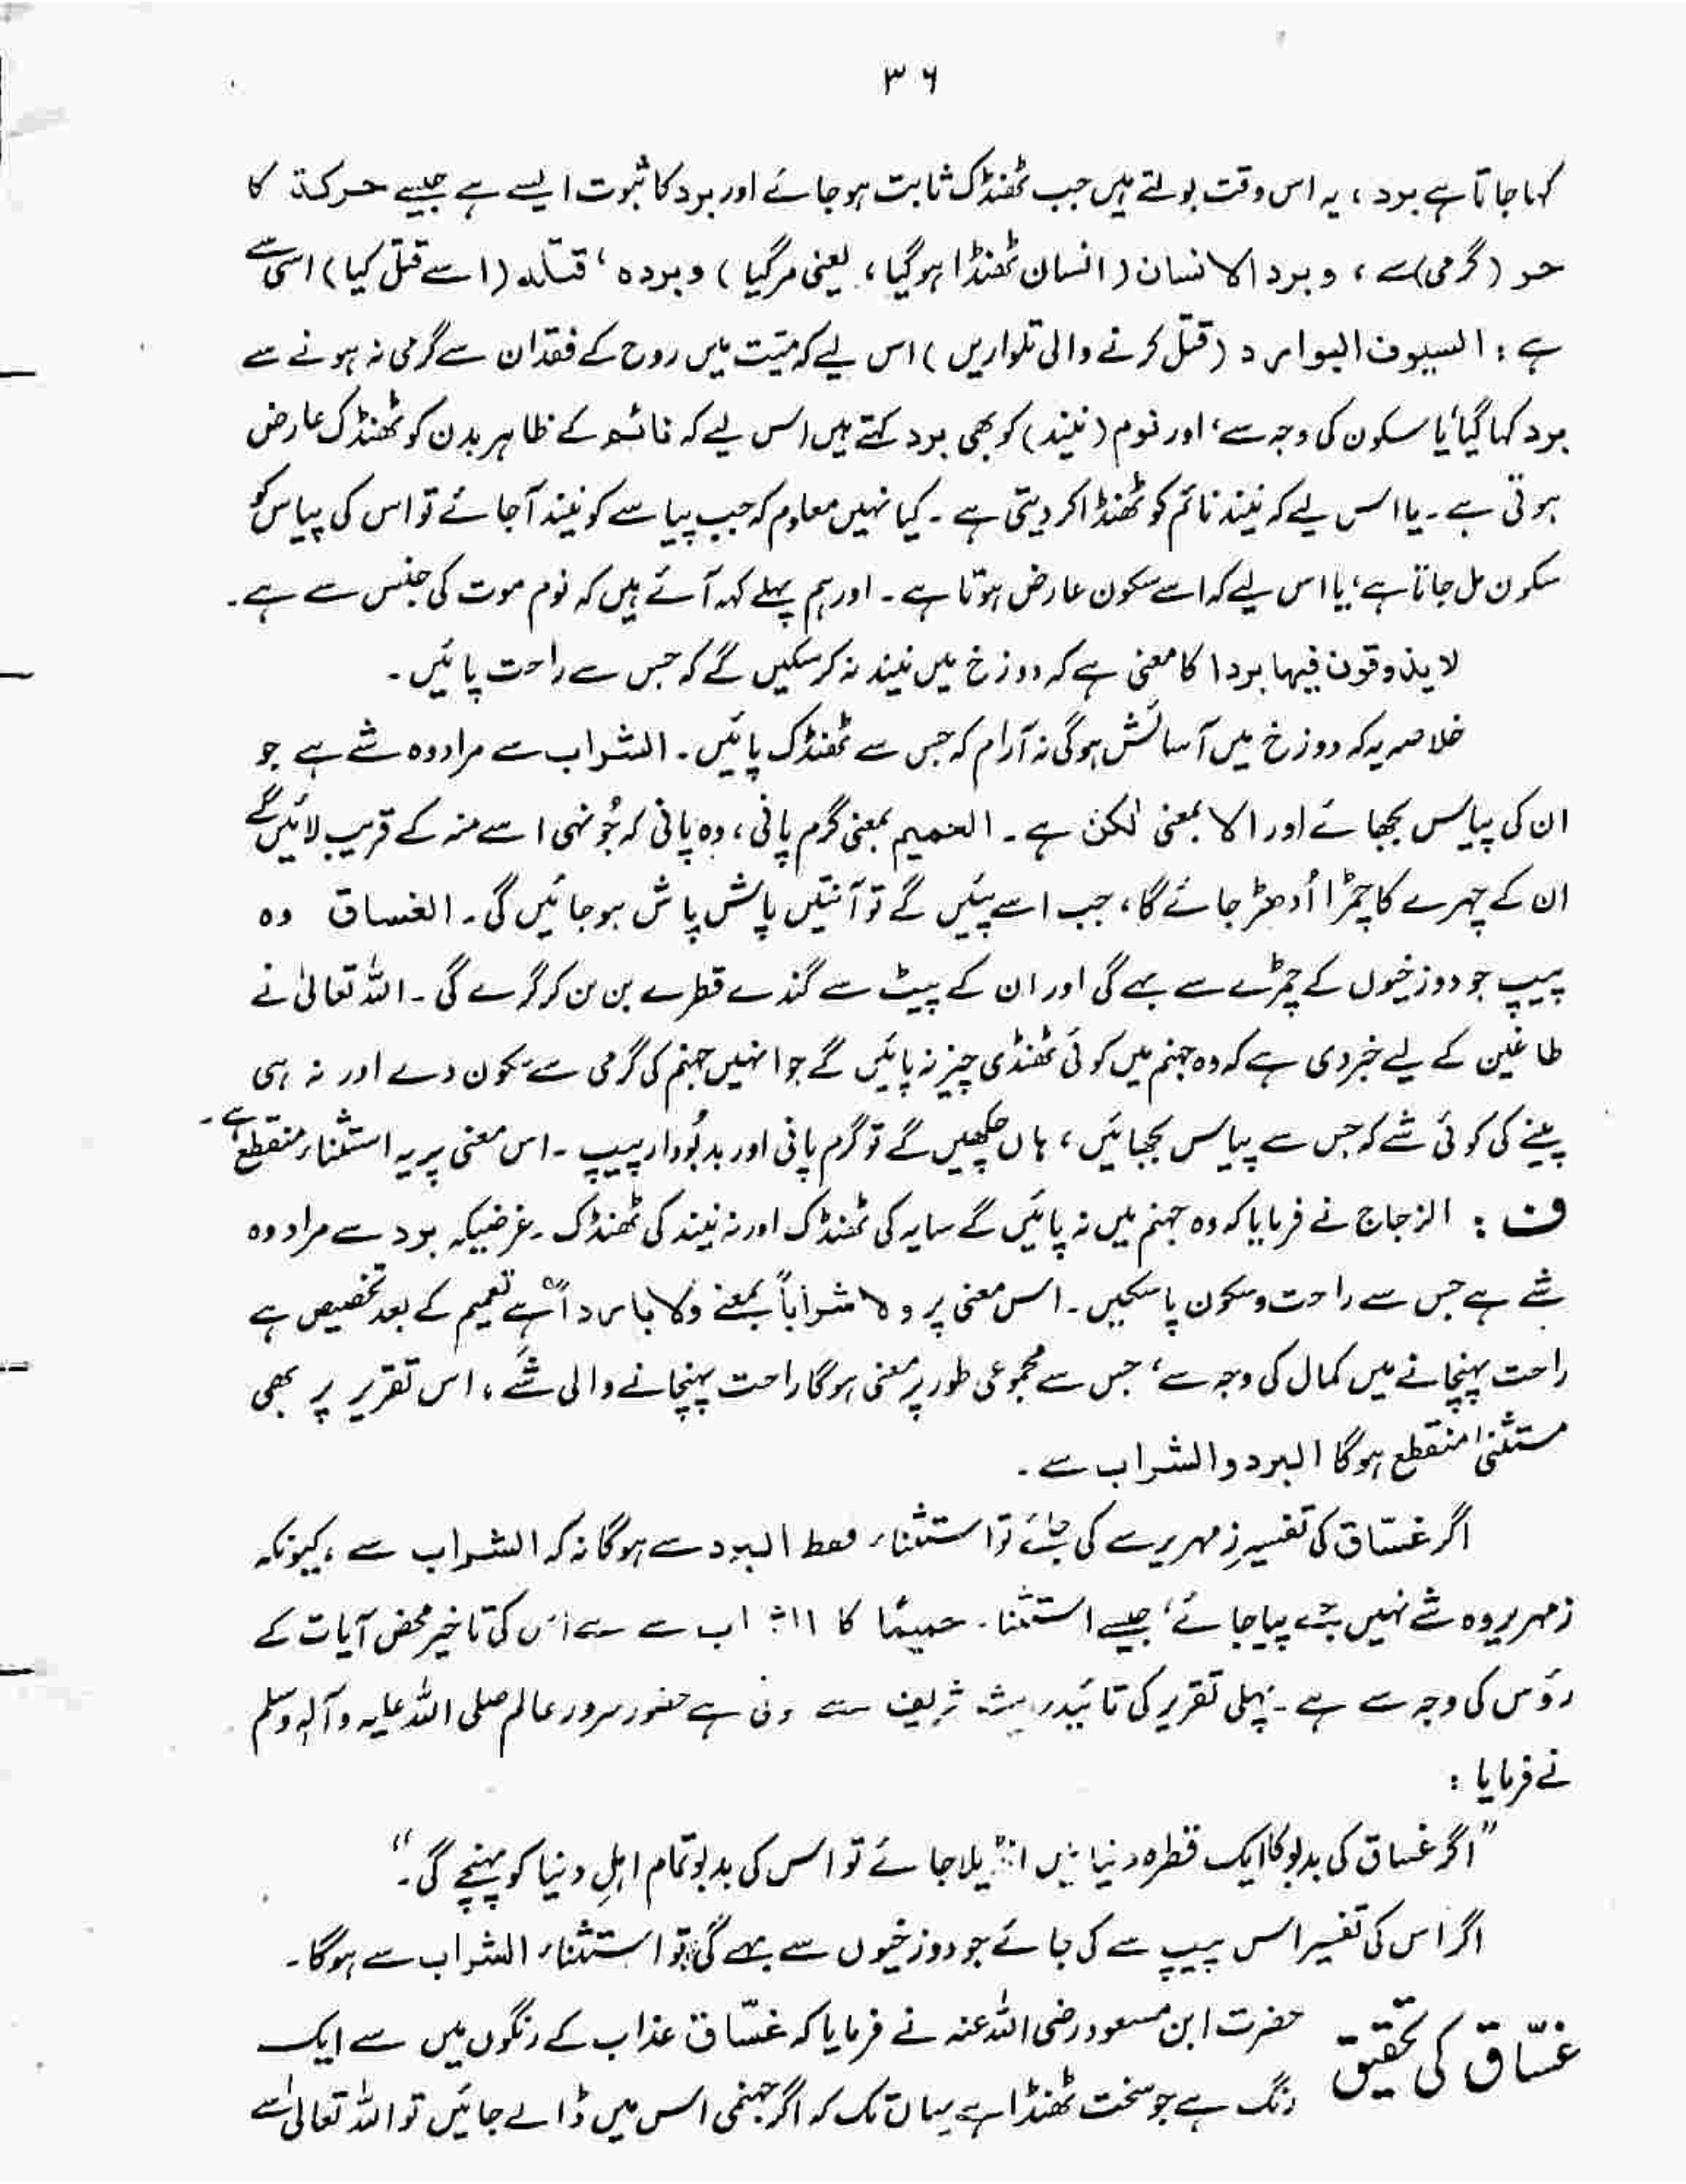 ۳۶
کہا جاتا ہے برد ، یہ اس وقت بولتے ہیں جب ٹھنڈک ثابت ہو جائے اور برد کا ثبوت ایسے ہے جیسے حرکۃ کا
حر (گرمی) سے ، و برد الانسان (انسان ٹھنڈا ہو گیا ، یعنی مر گیا) و بردہ ، قتلہ (اسے قتل کیا) اسی سے
ہے : السیوف البوارد (قتل کرنے والی تلواریں) اس لیے کہ میّت میں روح کے فقدان سے گرمی نہ ہونے سے
برد کہا گیا ، یا سکون کی وجہ سے ، اور نوم (نیند) کو بھی برد کہتے ہیں اس لیے کہ نائم کے ظاہر بدن کو ٹھنڈک عارض
ہوتی ہے ۔ یا اس لیے کہ نیند نائم کو ٹھنڈا کر دیتی ہے ۔ کیا نہیں معلوم کہ جب پیاسے کو نیند آجائے تو اس کی پیاس کو
سکون مل جاتا ہے ، یا اس لیے کہ اسے سکون عارض ہوتا ہے ۔ اور ہم پہلے کہہ آئے ہیں کہ نوم موت کی جنس سے ہے ۔
لا یذوقون فیہا بردا کا معنی ہے کہ دوزخ میں نیند نہ کر سکیں گے کہ جس سے راحت پائیں ۔
خلاصہ یہ کہ دوزخ میں آسائش ہوگی نہ آرام کہ جس سے ٹھنڈک پائیں ۔ الشراب سے مراد وہ شے ہے جو
ان کی پیاس بجھائے اور الا بمعنی لٰکن ہے ۔ الحمیم بمعنی گرم پانی ، وہ پانی کہ جُونہی اسے منہ کے قریب لائیں گے
ان کے چہرے کا چمڑا اُدھڑ جائے گا ، جب اسے پئیں گے تو آنتیں پاش پاش ہو جائیں گی ۔ الغساق وہ
پیپ جو دوزخیوں کے چمڑے سے بہے گی اور ان کے پیٹ سے گندے قطرے بن بن کر گرے گی ۔ اللہ تعالیٰ نے
طاغین کے لیے خبر دی ہے کہ وہ جہنم میں کوئی ٹھنڈی چیز نہ پائیں گے جو انہیں جہنم کی گرمی سے سکون دے اور نہ ہی
پینے کی کوئی شے کہ جس سے پیاس بجھائیں ، ہاں چکھیں گے تو گرم پانی اور بدبُودار پیپ ۔ اس معنی پر یہ استثناء منقطع ہے ۔
ف : الزجاج نے فرمایا کہ وہ جہنم میں نہ پائیں گے سایہ کی ٹھنڈک اور نہ نیند کی ٹھنڈک ۔ غرضیکہ برد سے مراد وہ
شے ہے جس سے راحت و سکون پا سکیں ۔ اس معنی پر ولا شراباً بمعنے ولا باردا ہے تعمیم کے بعد تخصیص ہے
راحت پہنچانے میں کمال کی وجہ سے ، جس سے مجموعی طور پر معنی ہوگا راحت پہنچانے والی شے ، اس تقریر پر بھی
مستثنیٰ منقطع ہوگا البرد والشراب سے ۔
اگر غسّاق کی تفسیر زمہریر سے کی جائے تو استثناء فقط البرد سے ہوگا نہ کہ الشراب سے ، کیونکہ
زمہریر وہ شے نہیں جسے پیا جائے ، جیسے استثناء حمیمًا کا سے اس کی تاخیر محض آیات کے
رؤس کی وجہ سے ہے ۔ پہلی تقریر کی تائید شریف سے ہے حضور سرور عالم صلی اللہ علیہ وآلہٖ وسلم
نے فرمایا :
"اگر غساق کی بدبو کا ایک قطرہ دنیا میں انڈیلا جائے تو اس کی بدبو تمام اہلِ دنیا کو پہنچے گی ۔"
اگر اس کی تفسیر اس پیپ سے کی جائے جو دوزخیوں سے بہے گی تو استثناء الشراب سے ہوگا ۔
غسّاق کی تحقیق حضرت ابن مسعود رضی اللہ عنہ نے فرمایا کہ غسّاق عذاب کے رنگوں میں سے ایک
رنگ ہے جو سخت ٹھنڈا ہے یہاں تک کہ اگر جہنمی اس میں ڈالے جائیں تو اللہ تعالیٰ سے